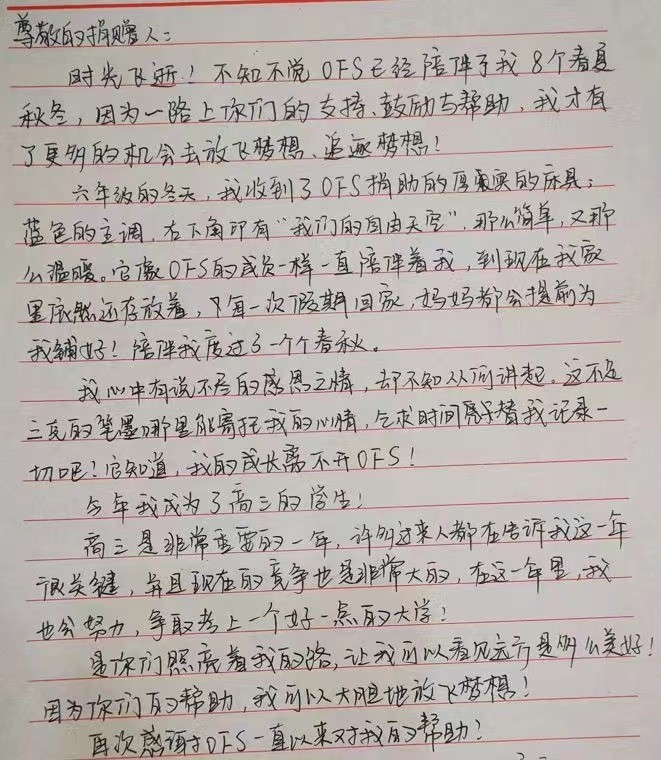 尊敬的捐赠人：
时光飞逝！不知不觉OFS已经陪伴了我8个春夏
秋冬，因为一路上你们的支持、鼓励与帮助，我才有
了更多的机会去放飞梦想、追逐梦想！
六年级的冬天，我收到了OFS捐助的厚实的床具；
蓝色的主调，右下角印有“我们的自由天空”，那么简单，又那
么温暖。它像OFS的成员一样一直陪伴着我，到现在我家
里依然还存放着，每一次假期回家，妈妈都会提前为
我铺好！陪伴我度过了一个个春秋。
我心中有说不尽的感恩之情，却不知从何讲起。这不足
三克的笔墨哪里能寄托我的心情，乞求时间亮子替我记录一
切吧！它知道，我的成长离不开OFS！
今年我成为了高三的学生！
高三是非常重要的一年，许多过来人都在告诉我这一年
很关键，并且现在的竞争也是非常大的，在这一年里，我
也会努力，争取考上一个好一点的大学！
是你们照亮着我的路，让我可以看见远方是多么美好！
因为你们的帮助，我可以大胆地放飞梦想！
再次感谢OFS一直以来对我的帮助！